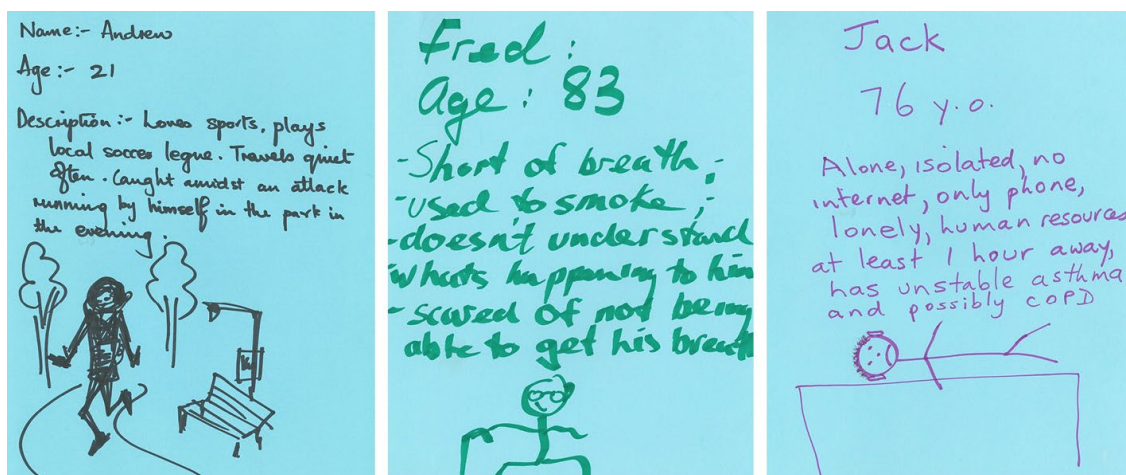 Name:- Andrew
Age:- 21
Description:- Loves sports, plays
local soccer legue. Travels quiet
often. Caught amidst an attack
running by himself in the park in
the evening.
Fred :
Age : 83
-Short of breath,-
-used to smoke,-
-doesn't understand
whats happening to him
-scared of not being
able to get his breath
Jack
76 y.o.
Alone, isolated, no
internet, only phone,
lonely, human resources
at least 1 hour away,
has unstable asthma
and possibly COPD